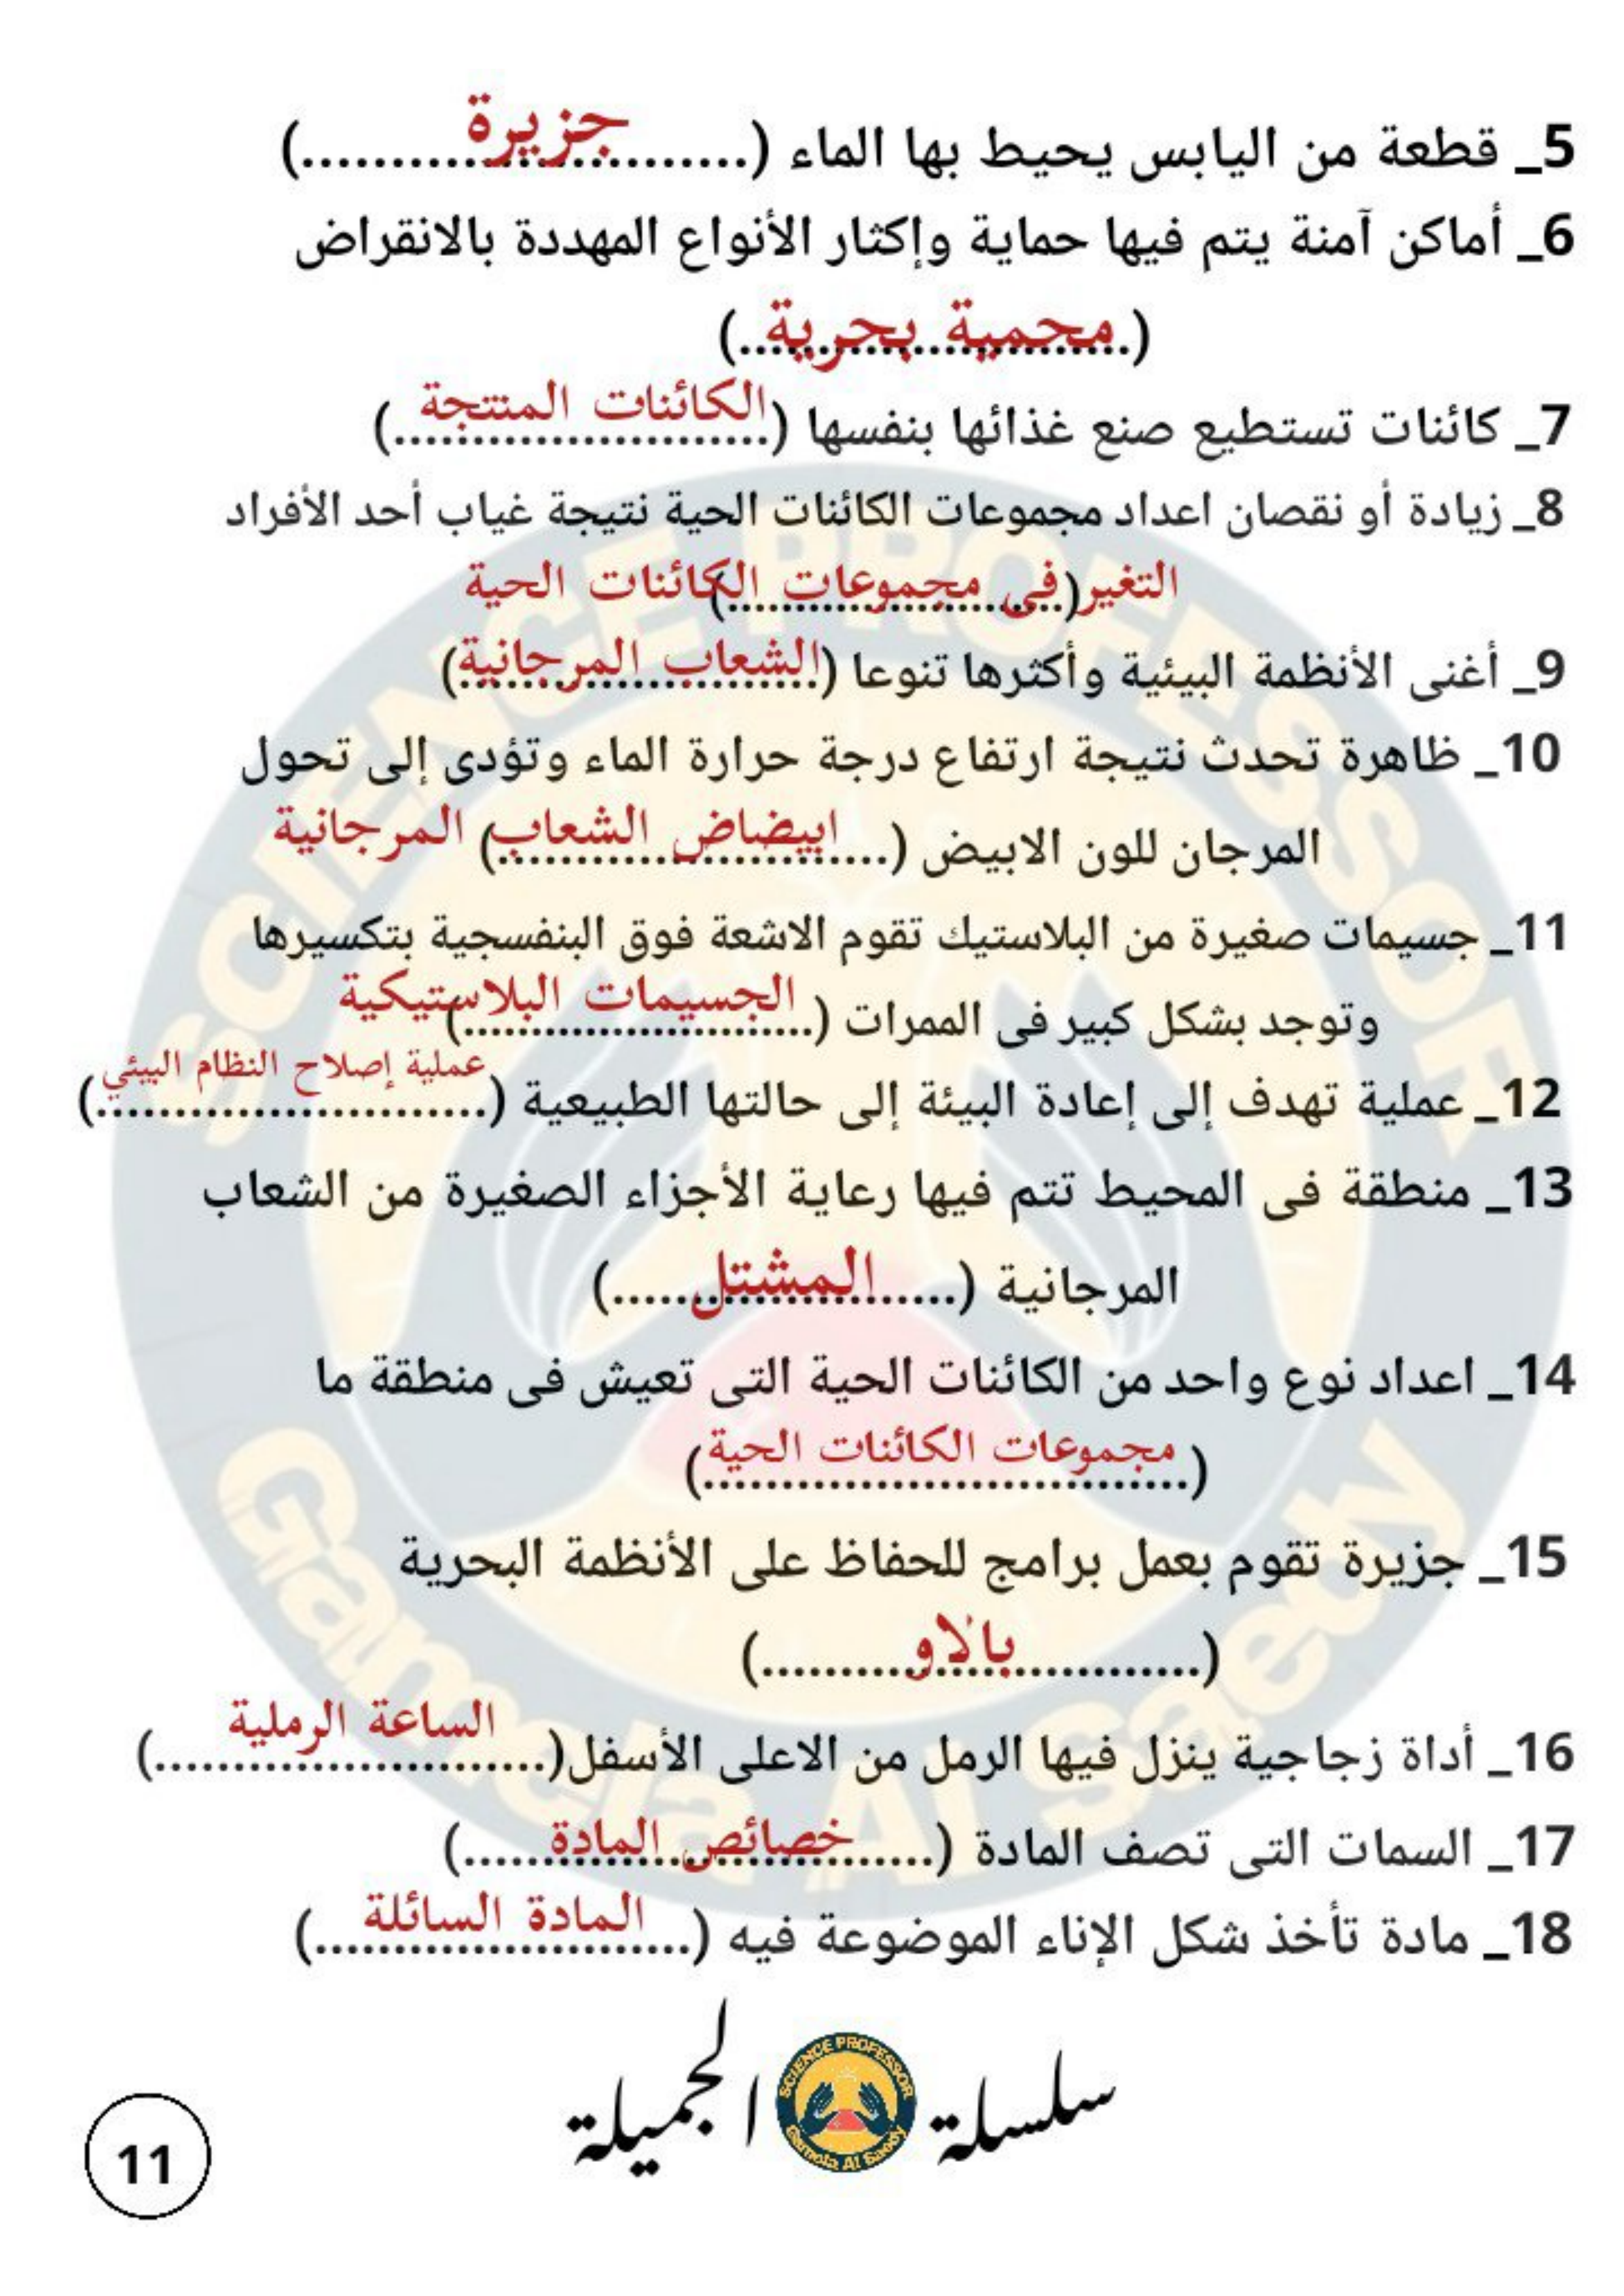 5_ قطعة من اليابس يحيط بها الماء (..........جزيرة..........)
6_ أماكن آمنة يتم فيها حماية وإكثار الأنواع المهددة بالانقراض
(..........محمية بحرية..........)
7_ كائنات تستطيع صنع غذائها بنفسها (..........الكائنات المنتجة..........)
8_ زيادة أو نقصان اعداد مجموعات الكائنات الحية نتيجة غياب أحد الأفراد
التغير (فى مجموعات الكائنات الحية..........)
9_ أغنى الأنظمة البيئية وأكثرها تنوعا (..........الشعاب المرجانية..........)
10_ ظاهرة تحدث نتيجة ارتفاع درجة حرارة الماء وتؤدى إلى تحول
المرجان للون الابيض (..........ابيضاض الشعاب) المرجانية
11_ جسيمات صغيرة من البلاستيك تقوم الاشعة فوق البنفسجية بتكسيرها
وتوجد بشكل كبير فى الممرات (..........الجسيمات البلاستيكية..........)
12_ عملية تهدف إلى إعادة البيئة إلى حالتها الطبيعية (..........عملية إصلاح النظام البيئي..........)
13_ منطقة فى المحيط تتم فيها رعاية الأجزاء الصغيرة من الشعاب
المرجانية (..........المشتل..........)
14_ اعداد نوع واحد من الكائنات الحية التى تعيش فى منطقة ما
(..........مجموعات الكائنات الحية..........)
15_ جزيرة تقوم بعمل برامج للحفاظ على الأنظمة البحرية
(..........بالاو..........)
16_ أداة زجاجية ينزل فيها الرمل من الاعلى الأسفل(..........الساعة الرملية..........)
17_ السمات التى تصف المادة (..........خصائص المادة..........)
18_ مادة تأخذ شكل الإناء الموضوعة فيه (..........المادة السائلة..........)
SCIENCE PROFESSOR
Gamela Al Saedy
سلسلة الجميلة
SCIENCE PROFESSOR
Gamela Al Saedy
11